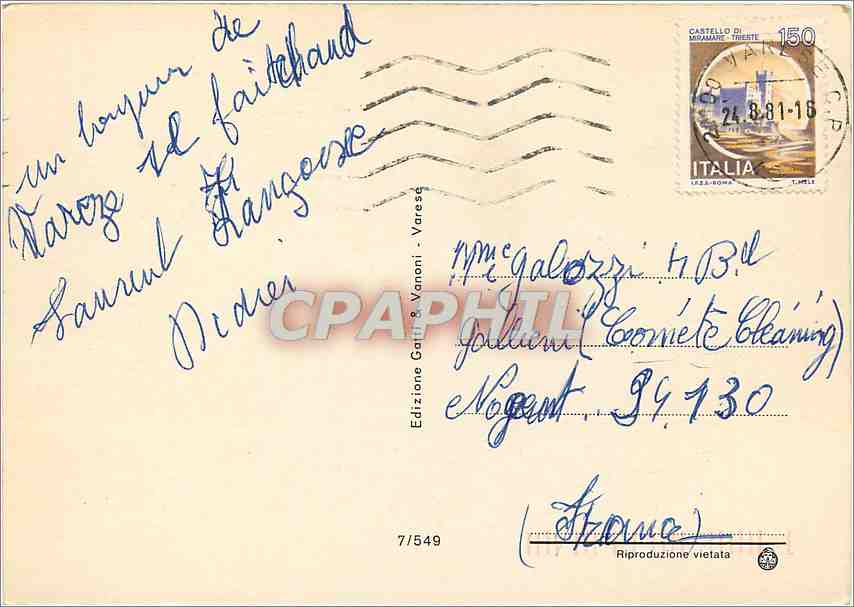 un bonjour de
Vareze il fait chaud
Laurent Françoise
Didier
CPAPHIL
Edizione Gatti & Vanoni - Varese
7/549
CASTELLO DI
MIRAMARE - TRIESTE
150
ITALIA
I.P.Z.S. - ROMA
T. MELE
24.8.81-16
Mme Galozzi 4 Bd
Galieni (Comète Cleaning)
Nogent. 94.130
(France)
Riproduzione vietata